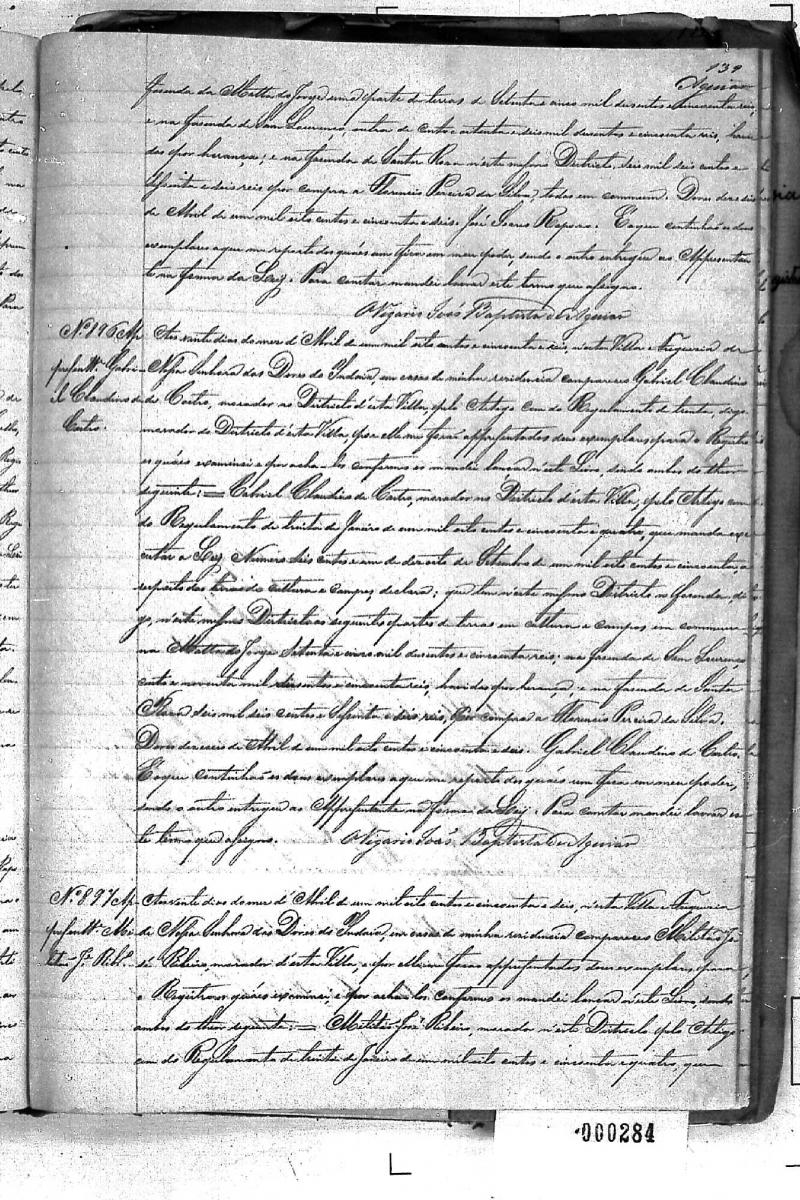 139
Aguiar
fasenda da Matta do Jorge uma parte de terras de Setenta e cinco mil dusentos e cincoenta reis,
e na fasenda de San Lourenço, outra de cento e oitenta e dois mil dusentos e cincoenta reis, havi
das por herança; e na fasenda de Santa Rosa n'este mesmo Districto, dois mil seis centos e
sessenta e dois reis por compra a Florencio Pereira da Silva, todas em commum. Dores
de Abril de um mil oito centos e cincoenta e seis. José Raposo. E o que continhão os dous
exemplares a que me reporto dos quáes um fica em meu poder, sendo o outro entregue ao Appresentan
te na forma da Ley. Para constar mandei lavrar este termo que assigno.
O Vigario José Baptista de Aguiar
Nº 196 Ap Aos vinte dias do mez d'Abril de um mil oito centos e cincoenta e seis, n'esta Villa e Freguezia de
presentte Gabri Nossa Senhora das Dores do Indaiá, em casas de minha residencia compareceo Gabriel Claudino
el Claudino de de Castro, morador no Districto d'esta Villa, pelo Artigo cem do Regulamento de trinta, digo
Castro. morador do Districto d'esta Villa, e por elle me forão appresentados dous exemplares para o Registo
os quáes examinei e por acha-los conformes os mandei lançar n'este Livro, sendo ambos do theor
seguinte: = Gabriel Claudino de Castro, morador no Districto d'esta Villa, pelo Artigo cem
do Regulamento de trinta de Janeiro de um mil oito centos e cincoenta e quatro, que manda exe
cutar a Ley Numero Seis centos e um de dezoito de Setembro de um mil oito centos e cincoenta, a
respeito das terras de cultura e campos, declara: que tem n'este mesmo Districto na fasenda, di
go, n'este mesmo Districto as seguintes partes de terras em cultura e campos em commum
na Matta do Jorge Setenta e cinco mil dusentos e cincoenta reis; na fasenda de San Lourenço
cento e noventa mil dusentos e cincoenta reis, havidas por herança, e na fasenda de Santa
Rosa dois mil seis centos e sessenta e dois reis, por compra a Florencio Pereira da Silva.
Dores dezeseis de Abril de um mil oito centos e cincoenta e seis. Gabriel Claudino de Castro.
E o que continhão os dous exemplares a que me reporto dos quáes um fica em meu poder,
sendo o outro entregue ao Appresentante na forma da Ley. Para constar mandei lavrar es
te termo que assigno. O Vigario José Baptista de Aguiar
Nº 897 Ap Aos vinte dias do mez d'Abril de um mil oito centos e cincoenta e seis, n'esta Villa e Freguezia
presentte Mi de Nossa Senhora das Dores do Indaiá, em casas de minha residencia compareceo Militão Jo
litão Je Ribo sé Ribeiro, morador d'esta Villa, e por elle me forão appresentados dous exemplares para
o Registro os quáes examinei, e por acha-los conformes os mandei lançar n'este Livro, sendo
ambos do theor seguinte: = Militão José Ribeiro, morador n'este Districto pelo Artigo
cem do Regulamento de trinta de Janeiro de um mil oito centos e cincoenta e quatro, que
000284